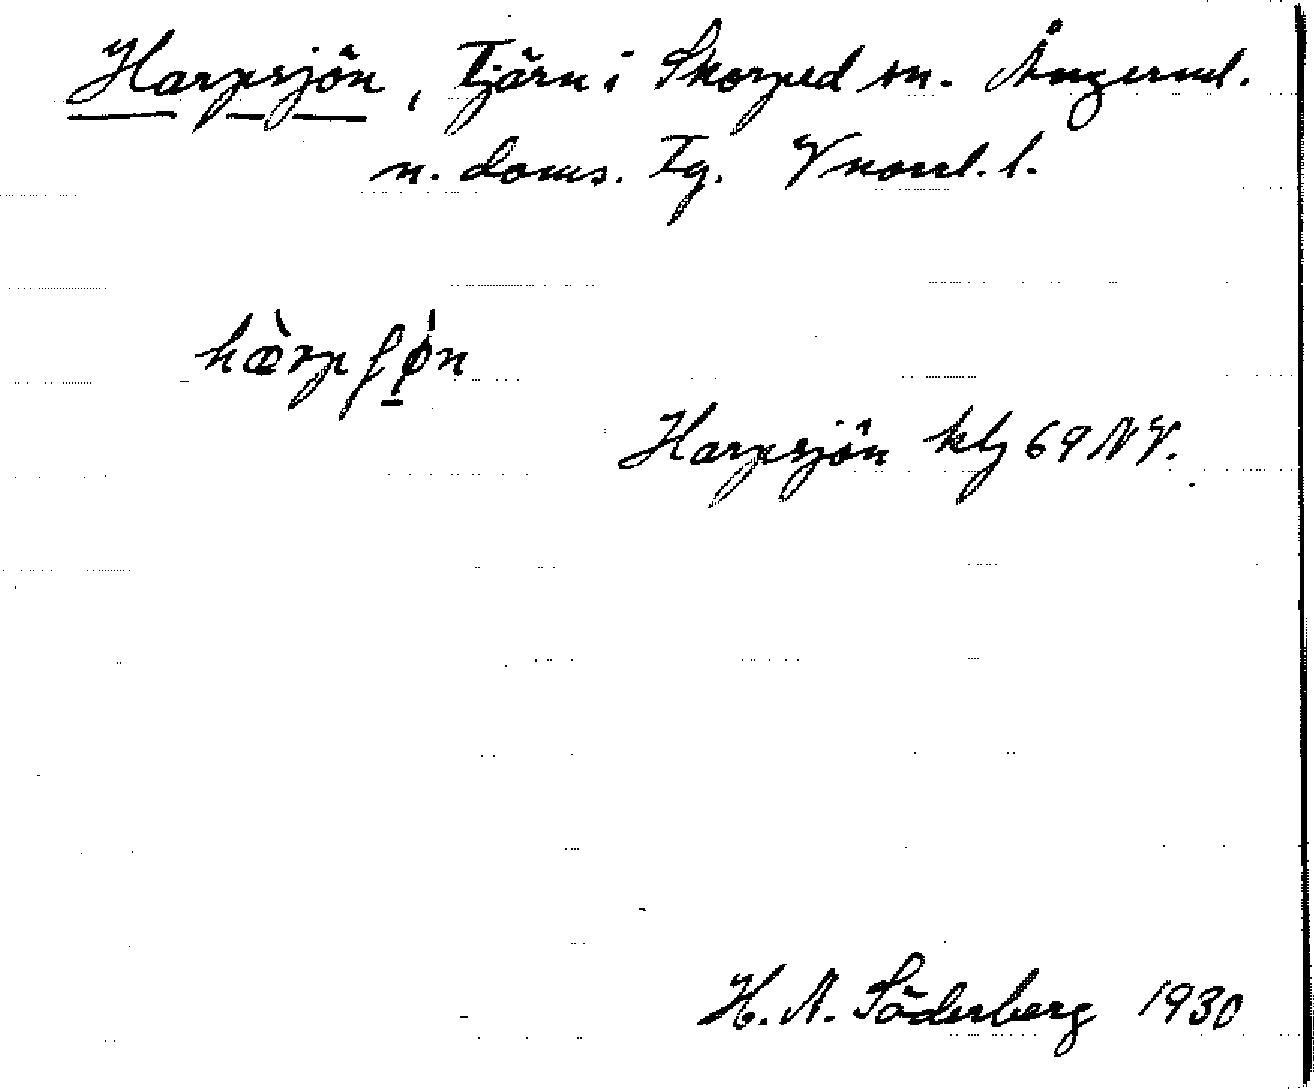 Harpsjön, Tjärn i Skorped sn. Ångerml.
n. doms. Tg. Vnorrl. l.
hæ̀rpʃǿ̣n
Harpsjön kbg 69 NV.
H. A. Söderberg 1930